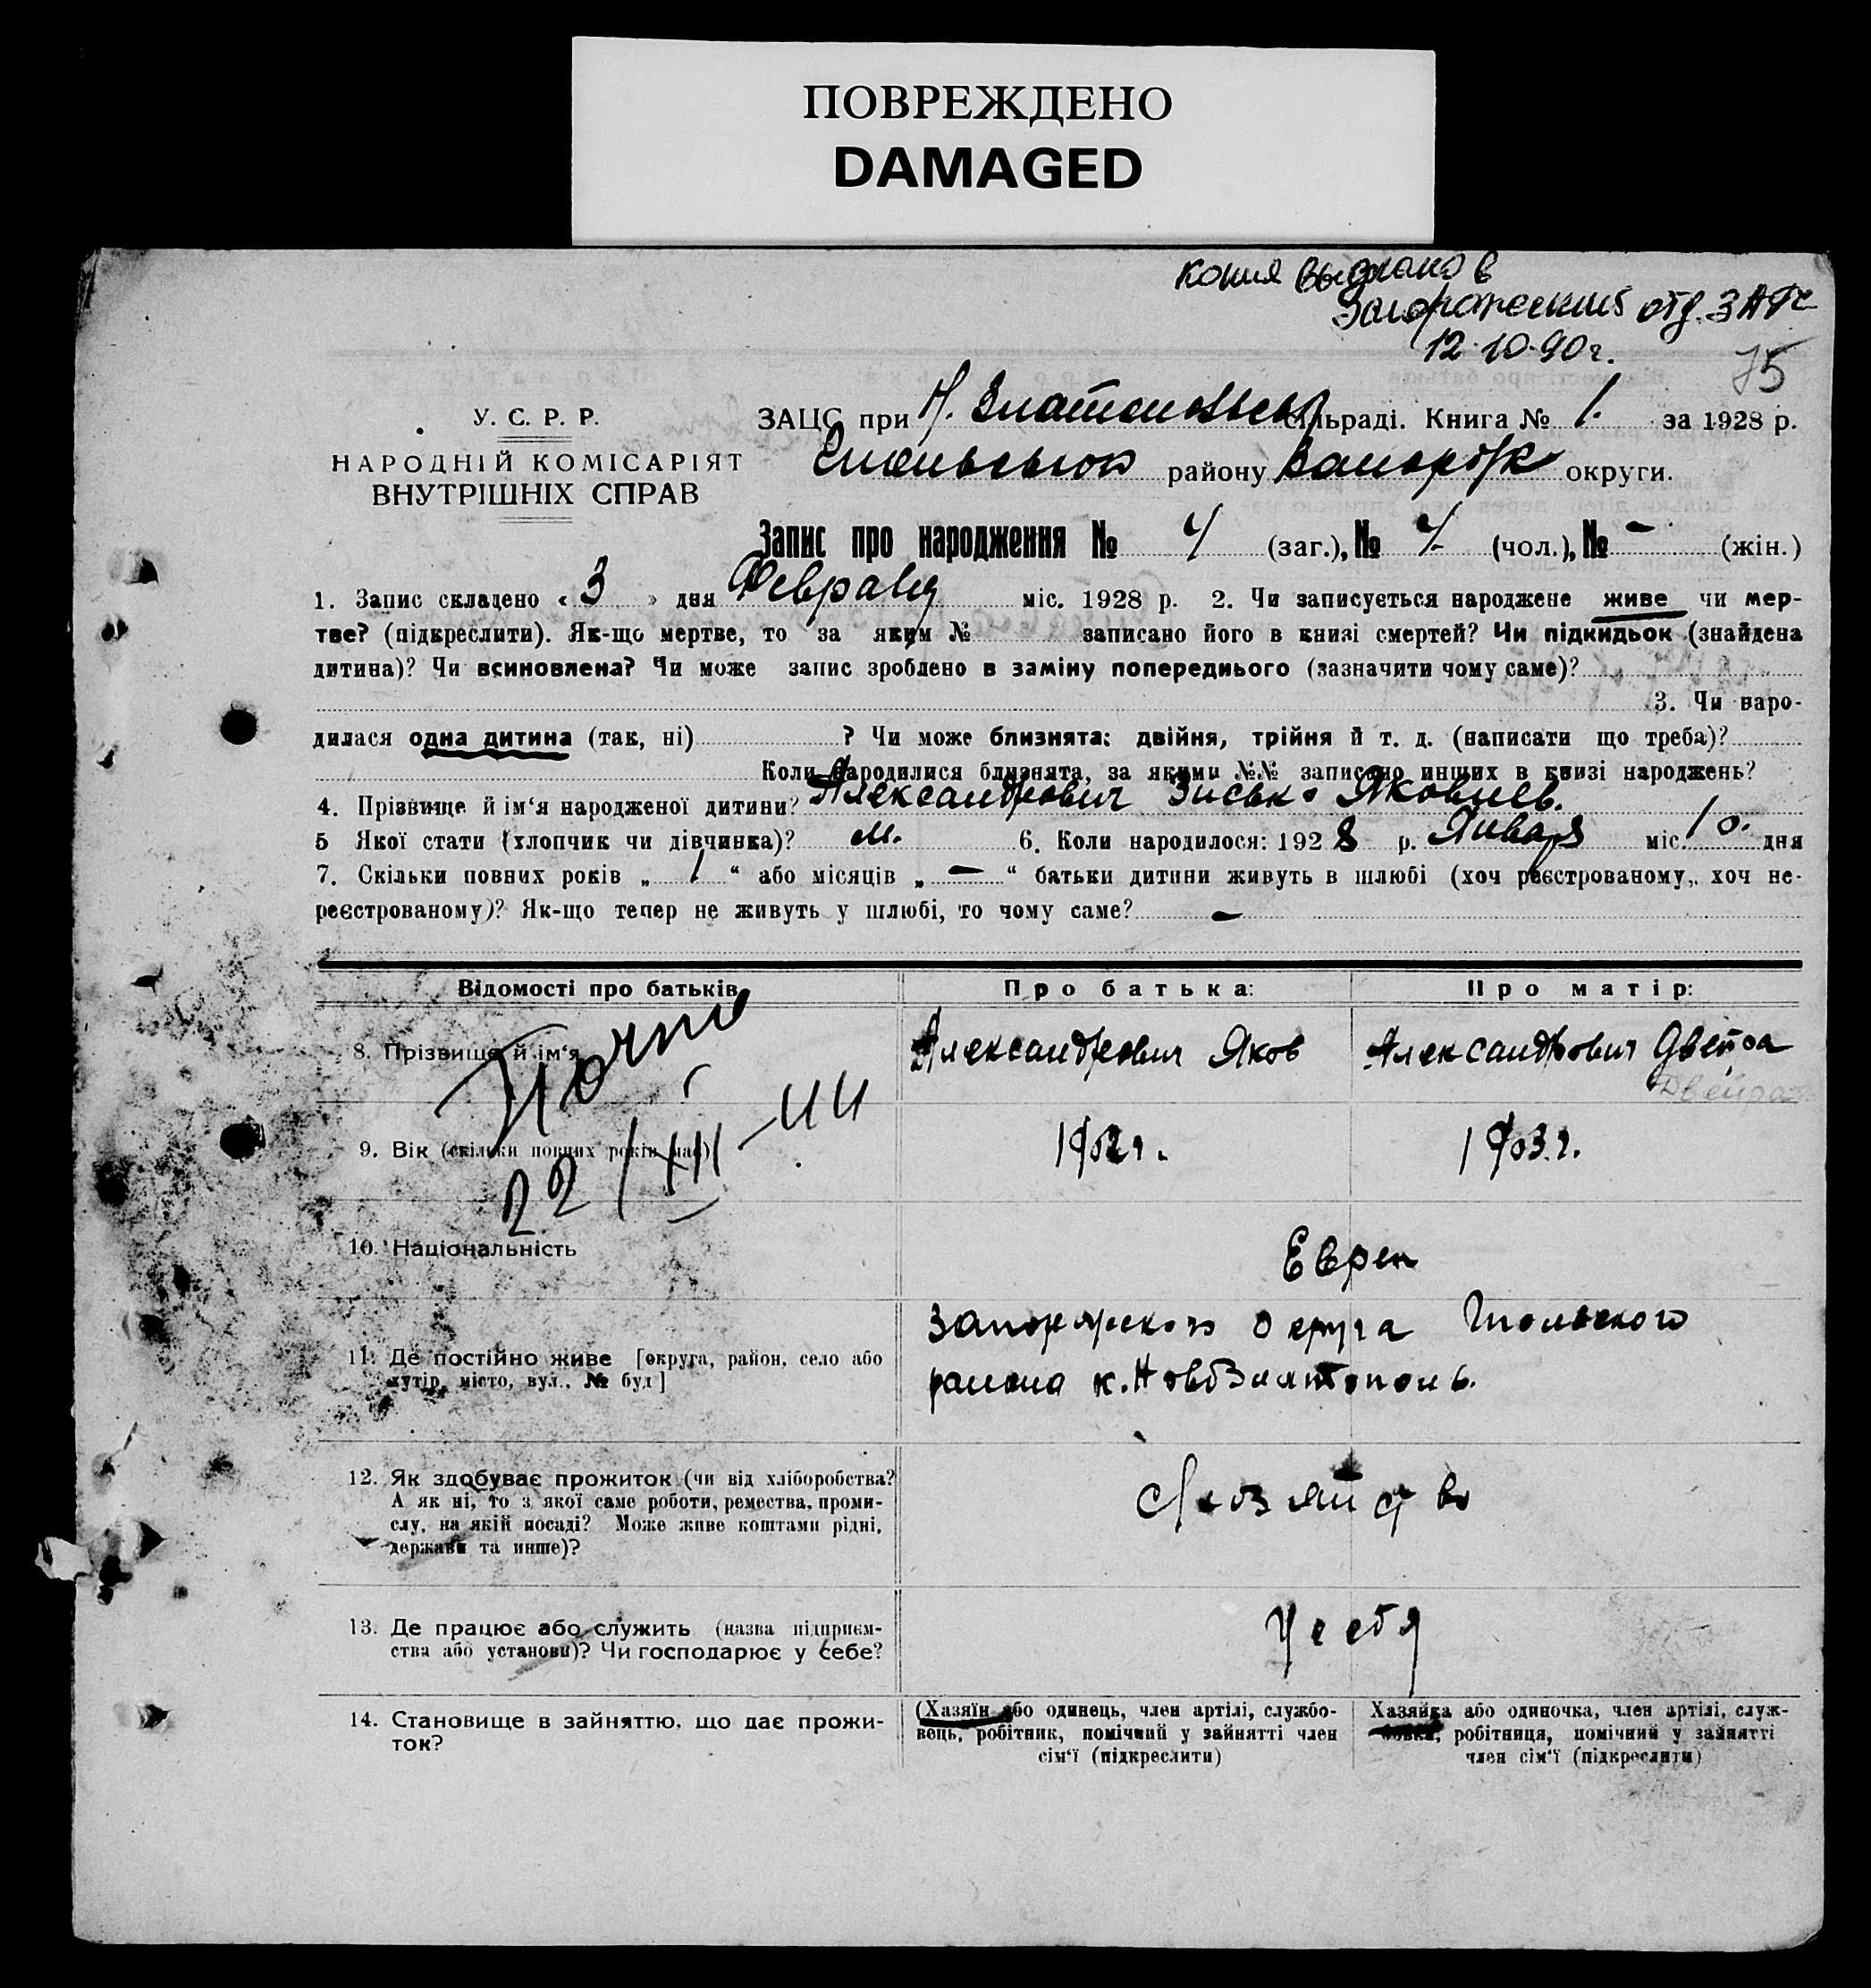 ПОВРЕЖДЕНО
DAMAGED
копия выдана в
Запорожский отд. ЗАГС
12.10.90 г.
75
У. С. Р. Р.
НАРОДНІЙ КОМІСАРІЯТ
ВНУТРІШНІХ СПРАВ
ЗАЦС при Н. сільраді. Книга № 1. за 1928 р.
району округи.
Запис про народження № 4 (заг.), № 4 (чол.), № — (жін.)
1. Запис складено « 3 » дня Февраля міс. 1928 р. 2. Чи записується народжене живе чи мер-
тве? (підкреслити). Як-що мертве, то за яким № записано його в книзі смертей? Чи підкидьок (знайдена
дитина)? Чи всиновлена? Чи може запис зроблено в заміну попереднього (зазначити чому саме)?
3. Чи наро-
дилася одна дитина (так, ні) ? Чи може близнята: двійня, трійня й т. д. (написати що треба)?
Коли народилися близнята, за якими №№ записано инших в книзі народжень?
4. Прізвище й ім'я народженої дитини? Александрович Зиська Яковлев.
5 Якої стати (хлопчик чи дівчинка)? м. 6. Коли народилося: 1928 р. Января міс. 10. дня
7. Скільки повних років „ 1 “ або місяців „ — “ батьки дитини живуть в шлюбі (хоч реєстрованому, хоч не-
реєстрованому)? Як-що тепер не живуть у шлюбі, то чому саме? —
Відомості про батьків Про батька: Про матір:
8. Прізвище й ім'я Александрович Яков Александрович Двейра
Двейра
9. Вік (скільки повних років має) 1902 г. 1903 г.
22/XII-44
10. Національність Евреи
11. Де постійно живе [округа, район, село або
хутір, місто, вул., № буд]
округа
района к. Новозлатополь.
12. Як здобуває прожиток (чи від хліборобства?
А як ні, то з якої саме роботи, ремества, проми-
слу, на якій посаді? Може живе коштами рідні,
держави та инше)?
13. Де працює або служить (назва підприєм-
ства або установи)? Чи господарює у себе?
У себя
14. Становище в зайняттю, що дає прожи-
ток?
(Хазяїн або одинець, член артілі, службо-
вець, робітник, помічний у зайнятті член
сім'ї (підкреслити)
Хазяйка або одиночка, член артілі, служ-
бовка, робітниця, помічний у зайнятті
член сім'ї (підкреслити)